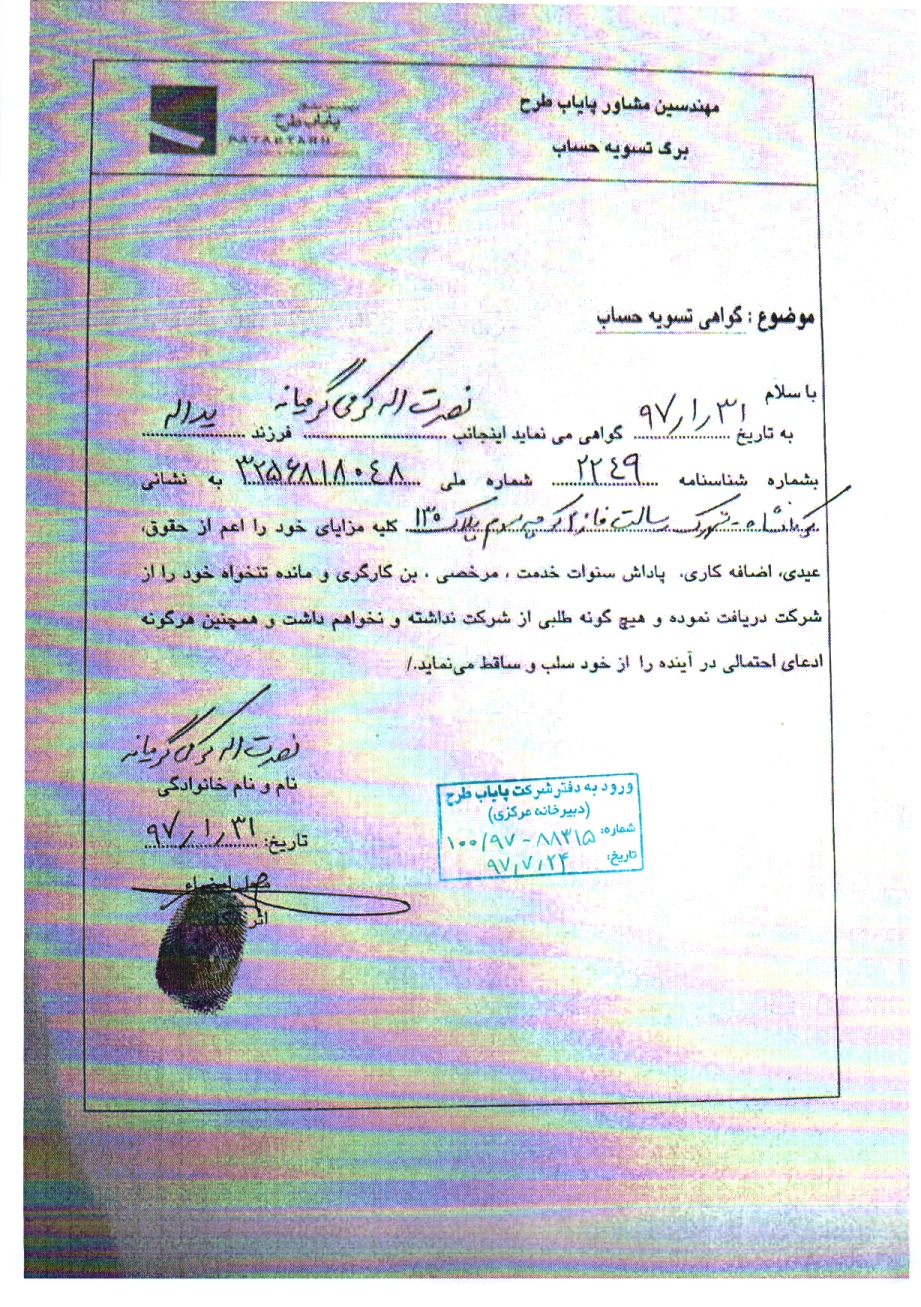 مهندسین مشاور پایاب طرح
برگ تسویه حساب
پایاب طرح
PAYABTARH
موضوع : گواهی تسویه حساب
با سلام
به تاریخ ۹۷/۱/۳۱ گواهی می نماید اینجانب نصرت اله کرمی گرمیانه فرزند یداله
بشماره شناسنامه ۲۲۴۹ شماره ملی ۳۲۵۶۸۱۸۰۴۸ به نشانی
کرمانشاه - شهرک رسالت فاز ۲ کوچه سوم پلاک ۱۳۰ کلیه مزایای خود را اعم از حقوق،
عیدی، اضافه کاری، پاداش سنوات خدمت ، مرخصی ، بن کارگری و مانده تنخواه خود را از
شرکت دریافت نموده و هیچ گونه طلبی از شرکت نداشته و نخواهم داشت و همچنین هرگونه
ادعای احتمالی در آینده را از خود سلب و ساقط می‌نماید./
نصرت اله کرمی گرمیانه
نام و نام خانوادگی
تاریخ: ۹۷/۱/۳۱
محل امضاء
اثر
ورود به دفتر شرکت پایاب طرح
(دبیرخانه مرکزی)
شماره: ۱۰۰/۹۷ - ۸۸۳۱۵
تاریخ: ۹۷/۷/۲۴